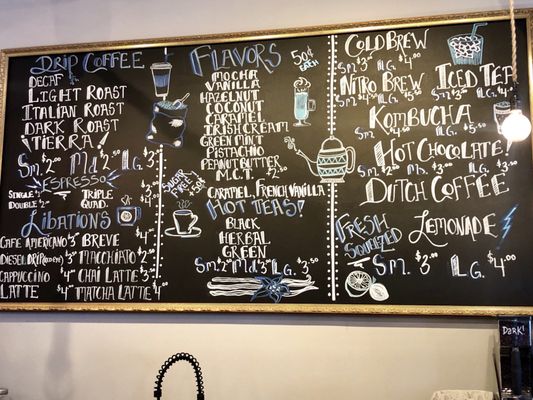 Drip Coffee
Decaf
Light Roast
Italian Roast
Dark Roast
Tierra
Sm. $2.00 Md. $2.50 LG. $3.00
Espresso
Single Triple
Double $2 Quad.
Libations
Cafe Americano $3 Breve
Macchiato $2
Cappuccino $4 Chai Latte
Latte $4 Matcha Latte $4
Flavors 50¢
Mocha
Vanilla
Hazelnut
Coconut
Caramel
Irish Cream
Green Mint
Pistachio
Peanut Butter
M.C.T. $2.00
Sugar Free
Caramel, French Vanilla
Hot Teas!
Black
Herbal
Green
Sm. $2 Md. $3 LG. $3
Cold Brew
Sm. LG.
Nitro Brew
LG. $5
Iced Tea
Sm. LG.
Kombucha
Sm. LG. $5
Hot Chocolate
Sm. $2 Md. $3 LG.
Dutch Coffee
Fresh Squeezed Lemonade
Sm. $3.00 LG. $4.00
Dark!